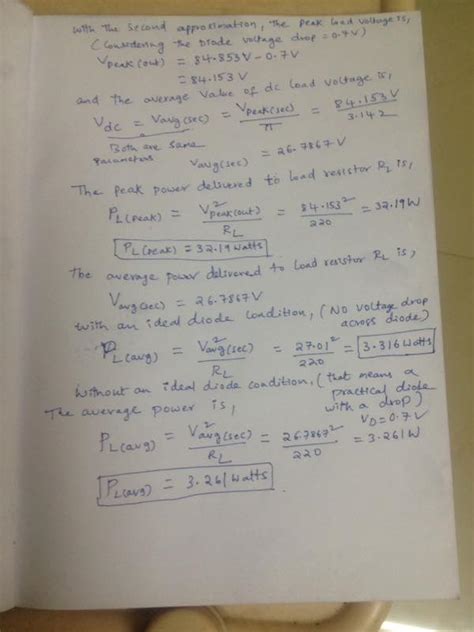 with the second approximation, the peak load voltage is,
(Considering the Diode voltage drop = 0.7V)
Vpeak(out) = 84.853V - 0.7V
= 84.153 V
and the average value of dc load voltage is,
Vdc = Vavg(sec) = Vpeak(sec) / π = 84.153V / 3.142
Both are same
parameters
Vavg(sec) = 26.7867V
The peak power delivered to load resistor RL is,
PL(peak) = V²peak(out) / RL = 84.153² / 220 = 32.19W
PL(peak) = 32.19 watts
The average power delivered to load resistor RL is,
Vavg(sec) = 26.7867V
with an ideal diode condition, (NO voltage drop
across diode)
PL(avg) = V²avg(sec) / RL = 27.01² / 220 = 3.316 watts
without an ideal diode condition, (that means a
practical diode
with a drop)
The average power is,
VD = 0.7V
PL(avg) = V²avg(sec) / RL = 26.7867² / 220 = 3.261W
PL(avg) = 3.261 watts